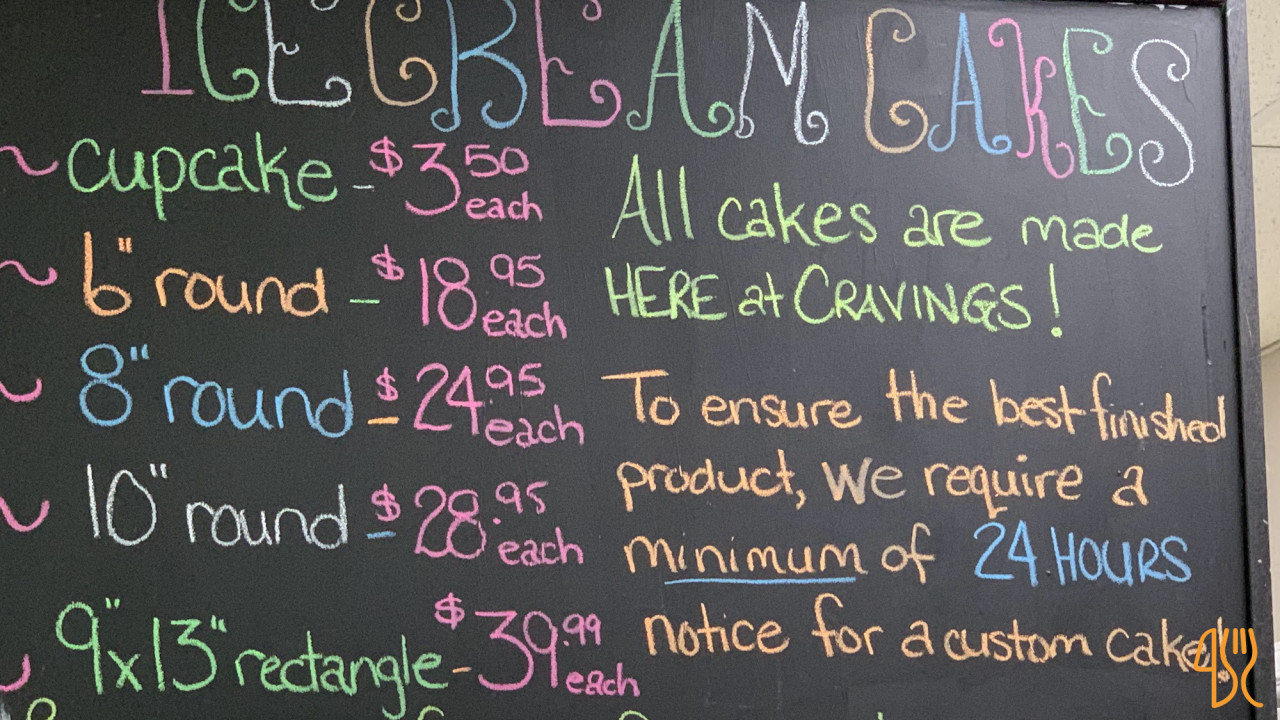 ICE CREAM CAKES
~ cupcake - $3.50 each
~ 6" round - $18.95 each
~ 8" round - $24.95 each
~ 10" round - $28.95 each
~ 9"x13" rectangle - $39.99 each
All cakes are made
HERE at CRAVINGS!
To ensure the best finished
product, we require a
minimum of 24 HOURS
notice for a custom cake!